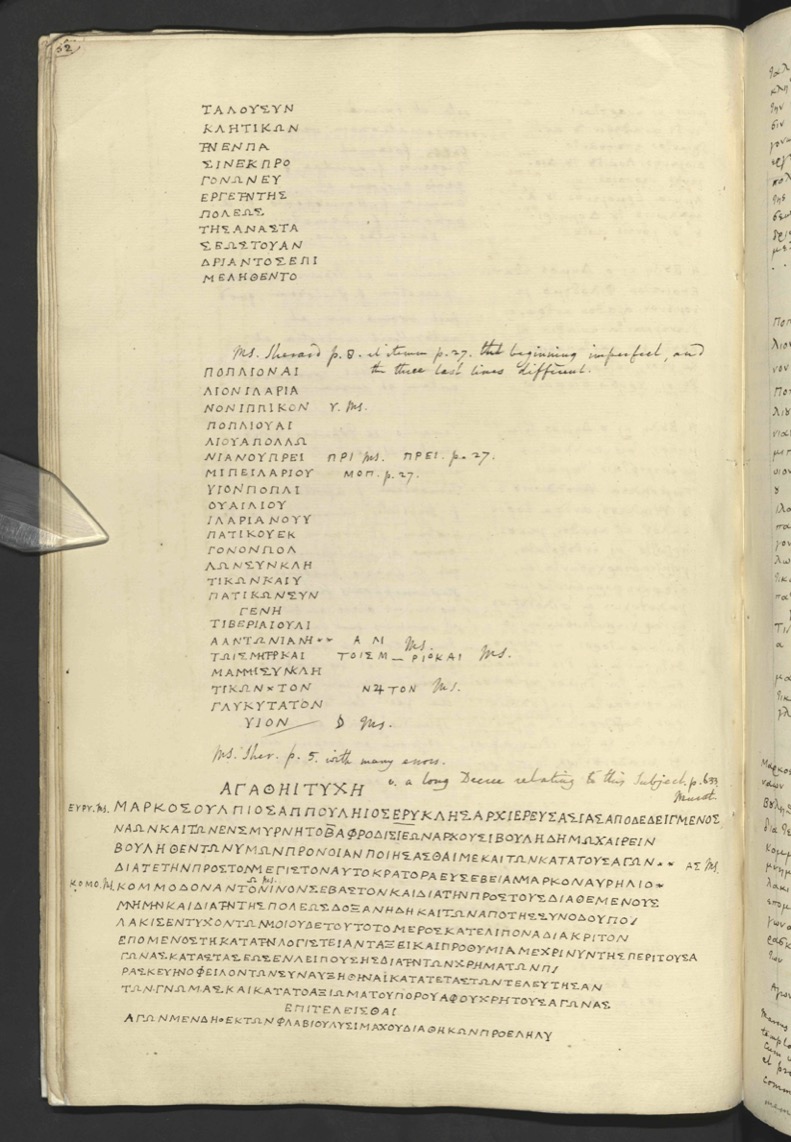 52
ΤΑΛΟΥΣΥΝ
ΚΛΗΤΙΚΩΝ
ΤΗΝΕΝΠΑ
ΣΙΝΕΚΠΡΟ
ΓΟΝΩΝΕΥ
ΕΡΓΕΤΗΝΤΗΣ
ΠΟΛΕΩΣ
ΤΗΣΑΝΑΣΤΑ
ΣΕΩΣΤΟΥΑΝ
ΔΡΙΑΝΤΟΣΕΠΙ
ΜΕΛΗΘΕΝΤΟ
Ms. Sherard p. 8. et iterum p. 27. the beginning imperfect, and
the three last lines different.
ΠΟΠΛΙΟΝΑΙ
ΛΙΟΝΙΛΑΡΙΑ
ΝΟΝΙΠΠΙΚΟΝ Υ. Ms.
ΠΟΠΛΙΟΥΑΙ
ΛΙΟΥΑΠΟΛΛΩ
ΝΙΑΝΟΥΠΡΕΙ ΠΡΙ Ms. ΠΡΕΙ. p. 27.
ΜΙΠΕΙΛΑΡΙΟΥ ΜΟΠ. p. 27.
ΥΙΟΝΠΟΠΛΙ
ΟΥΑΙΛΙΟΥ
ΙΛΑΡΙΑΝΟΥΥ
ΠΑΤΙΚΟΥΕΚ
ΓΟΝΟΝΠΟΛ
ΛΩΝΣΥΝΚΛΗ
ΤΙΚΩΝΚΑΙΥ
ΠΑΤΙΚΩΝΣΥΝ
ΓΕΝΗ
ΤΙΒΕΡΙΑΙΟΥΛΙ
ΑΑΝΤΩΝΙΑΝΗ** Α Μ Ms.
ΤΩΙΣΜΗΤΡΚΑΙ ΤΟΙΣΜ_ΡΙΟΚΑΙ Ms.
ΜΑΜΜΙΣΥΝΚΛΗ
ΤΙΚΩΝ*ΤΟΝ ΤΟΝ Ms.
ΓΛΥΚΥΤΑΤΟΝ
ΥΙΟΝ D Ms.
Ms. Sher. p. 5. with many errors.
v. a long Decree relating to this Subject. p. 633
Murat.
ΑΓΑΘΗΙΤΥΧΗ
ΕΥΡΥ. Ms. ΜΑΡΚΟΣΟΥΛΠΙΟΣΑΠΠΟΥΛΗΙΟΣΕΡΥΚΛΗΣΑΡΧΙΕΡΕΥΣΑΣΙΑΣΑΠΟΔΕΔΕΙΓΜΕΝΟΣ
ΝΑΩΝΚΑΙΤΩΝΕΝΣΜΥΡΝΗΤΟΒΑΦΡΟΔΙΣΙΕΩΝΑΡΧΟΥΣΙΒΟΥΛΗΔΗΜΩΧΑΙΡΕΙΝ
ΒΟΥΛΗΘΕΝΤΩΝΥΜΩΝΠΡΟΝΟΙΑΝΠΟΙΗΣΑΣΘΑΙΜΕΚΑΙΤΩΝΚΑΤΑΤΟΥΣΑΓΩΝ** ΑΣ Ms.
ΔΙΑΤΕΤΗΝΠΡΟΣΤΟΝΜΕΓΙΣΤΟΝΑΥΤΟΚΡΑΤΟΡΑΕΥΣΕΒΕΙΑΝΜΑΡΚΟΝΑΥΡΗΛΙΟ*
Ω Ms.
ΚΟΜΟ. Ms. ΚΟΜΜΟΔΟΝΑΝΤΟΝΙΝΟΝΣΕΒΑΣΤΟΝΚΑΙΔΙΑΤΗΝΠΡΟΣΤΟΥΣΔΙΑΘΕΜΕΝΟΥΣ
ΜΝΗΜΗΝΚΑΙΔΙΑΤΗΝΤΗΣΠΟΛΕΩΣΔΟΞΑΝΗΔΗΚΑΙΤΩΝΑΠΟΤΗΣΣΥΝΟΔΟΥΠΟ/
ΛΑΚΙΣΕΝΤΥΧΟΝΤΩΝΜΟΙΟΥΔΕΤΟΥΤΟΤΟΜΕΡΟΣΚΑΤΕΛΙΠΟΝΑΔΙΑΚΡΙΤΟΝ
ΕΠΟΜΕΝΟΣΤΗΚΑΤΑΤΗΝΛΟΓΙΣΤΕΙΑΝΤΑΞΕΙΚΑΙΠΡΟΘΥΜΙΑΜΕΧΡΙΝΥΝΤΗΣΠΕΡΙΤΟΥΣΑ
ΓΩΝΑΣΚΑΤΑΣΤΑΣΕΩΣΕΝΛΕΙΠΟΥΣΗΣΔΙΑΤΗΝΤΩΝΧΡΗΜΑΤΩΝΠ/
ΡΑΣΚΕΥΗΝΟΦΕΙΛΟΝΤΩΝΣΥΝΑΥΞΗΘΗΝΑΙΚΑΤΑΤΕΤΑΣΤΩΝΤΕΛΕΥΤΗΣΑΝ
ΤΩΝΓΝΩΜΑΣΚΑΙΚΑΤΑΤΟΑΞΙΩΜΑΤΟΥΠΟΡΟΥΑΦΟΥΧΡΗΤΟΥΣΑΓΩΝΑΣ
ΕΠΙΤΕΛΕΙΣΘΑΙ
ΑΓΩΝΜΕΝΔΗΟΕΚΤΩΝΦΛΑΒΙΟΥΛΥΣΙΜΑΧΟΥΔΙΑΘΗΚΩΝΠΡΟΕΛΗΛΥ